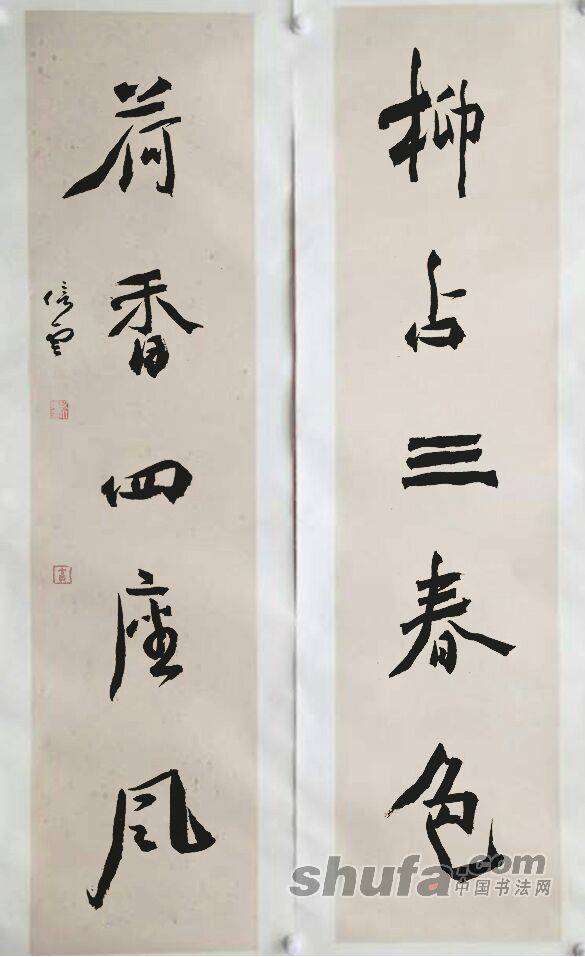 柳占三春色
荷香四座风
信云
shufa.com
中国书法网